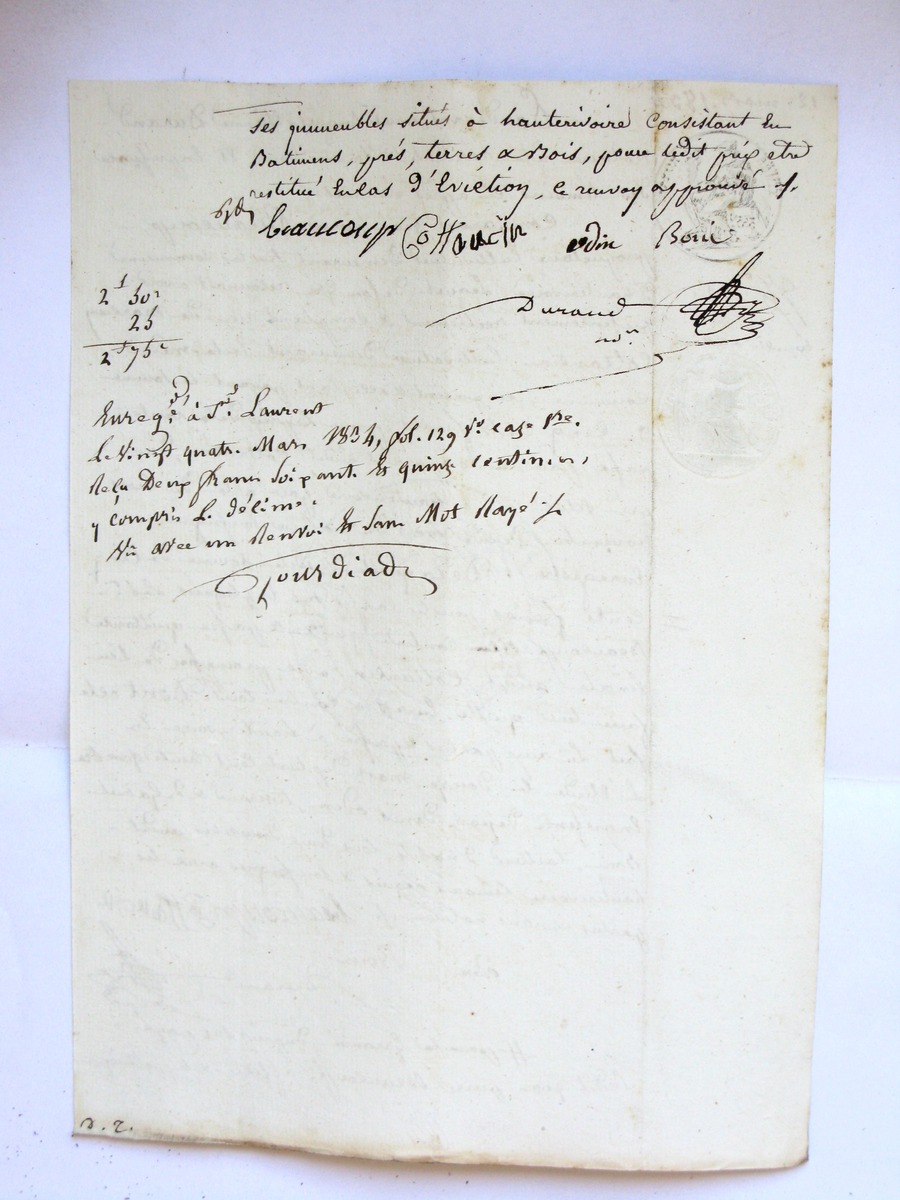 ses immeubles situés à hauterivoire Consistant En
Batimens, prés, terres & Bois, pour ledit prix etre
restitué En cas d'Eviction, ce renvoy approuvé
beaucoup odin Borie
Durand
nre
2f 50c
25
2f 75c
Enregé. à St. Laurent
Le vingt quatre Mars 1834, fol. 129 Vo. case 1re.
Reçu Deux francs Soixante Et quinze centimes,
y compris Le décime.
Vû avec un Renvoi Et Sans Mot Rayé